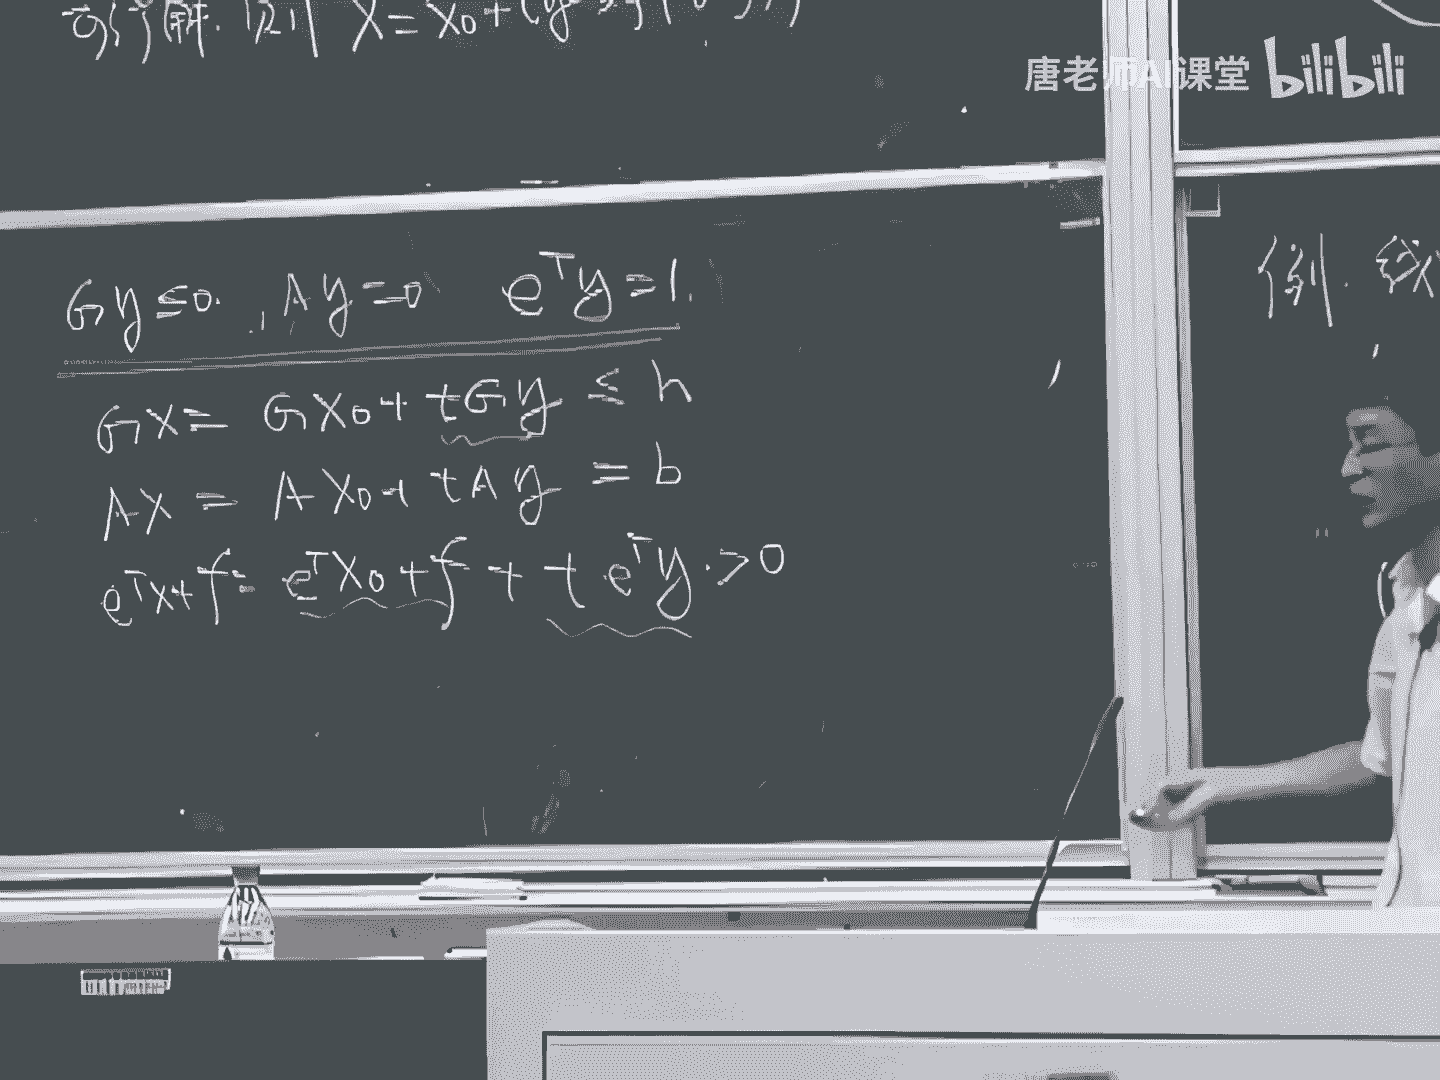 可行解. 则 X = X₀ +
唐老师AI课堂 bilibili
Gy ≤ 0. , Ay = 0 eᵀy = 1.
例. 线
GX = GX₀ + tGy ≤ h
AX = AX₀ + tAy = b
eᵀX + f = eᵀX₀ + f + t eᵀy > 0